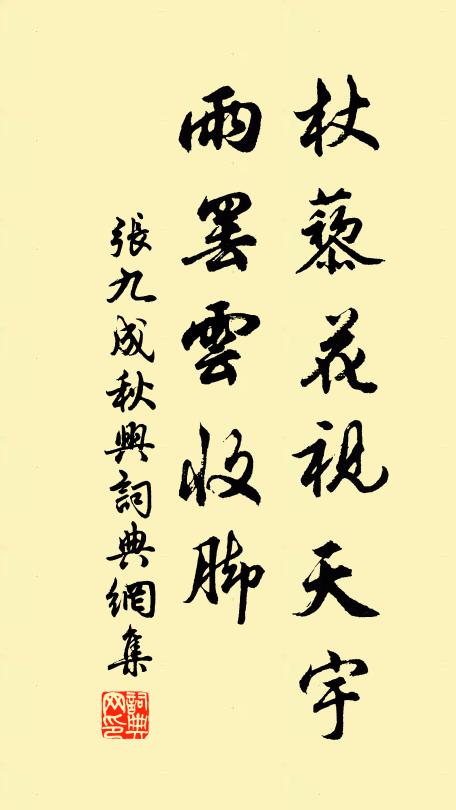 杖藜花視天宇
雨罢雲收脚
張九成秋興詞典網集
詞典网印